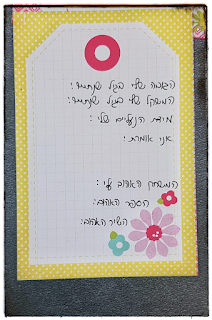 הגובה שלי בגיל שנתיים:
המשקל שלי בגיל שנתיים:
מידת הנעליים שלי:
אני אומרת:
המשחק האהוב עלי:
הספר האהוב:
השיר האהוב: